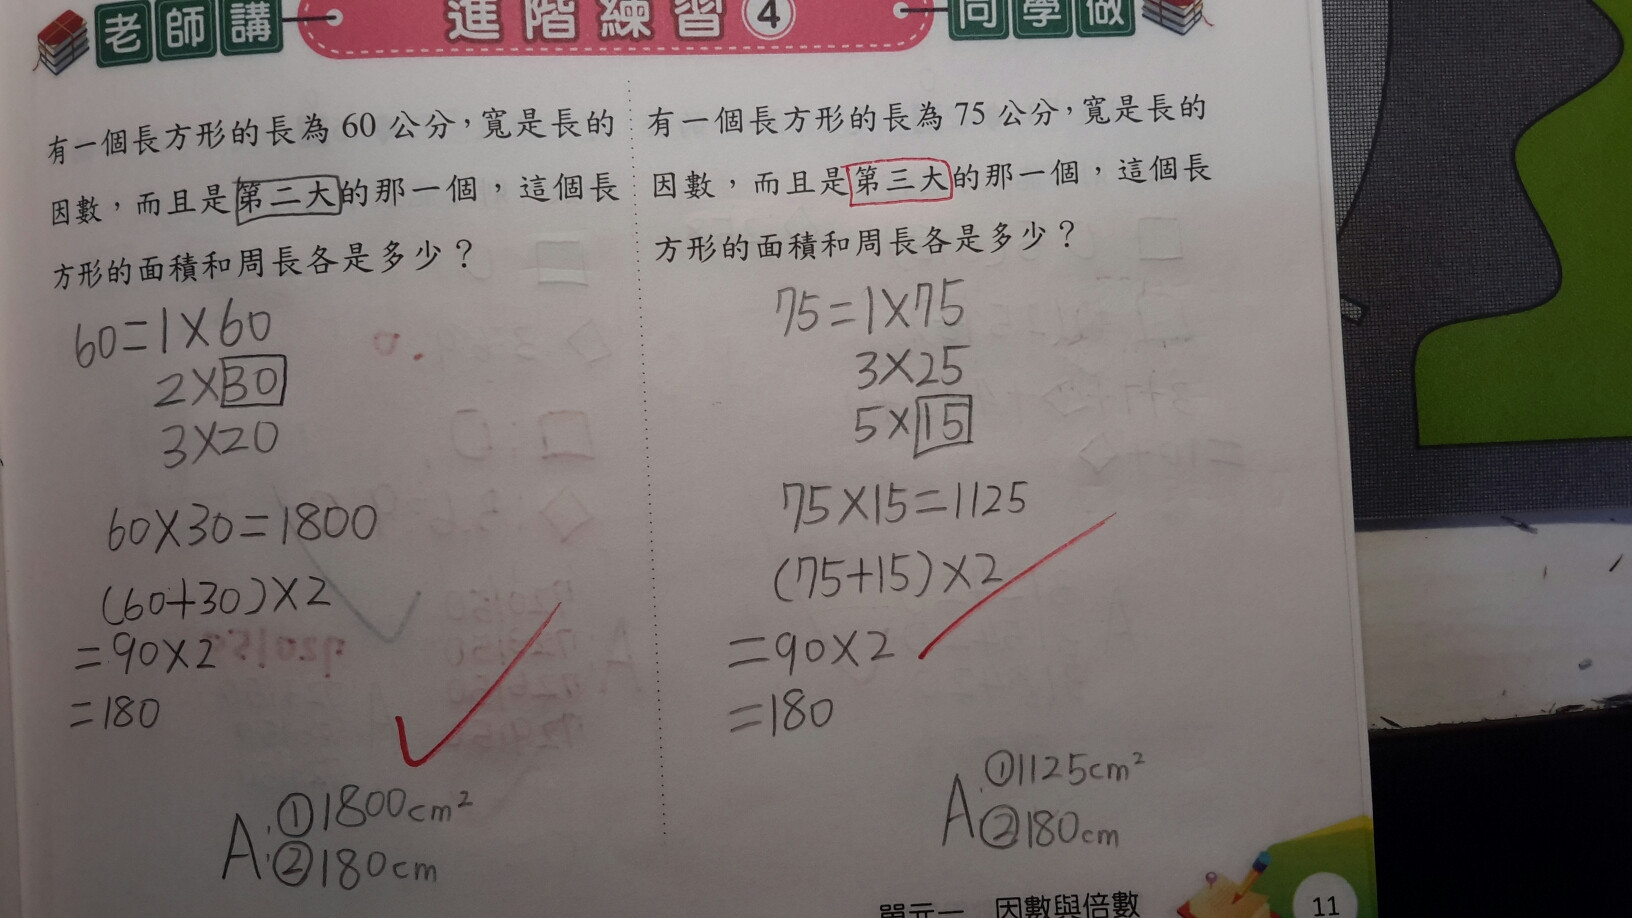 老師講
進階練習④
同學做
有一個長方形的長為 60 公分，寬是長的
因數，而且是第二大的那一個，這個長
方形的面積和周長各是多少？
60=1×60
2×30
3×20
60×30=1800
(60+30)×2
=90×2
=180
A:①1800cm²
②180cm
有一個長方形的長為 75 公分，寬是長的
因數，而且是第三大的那一個，這個長
方形的面積和周長各是多少？
75=1×75
3×25
5×15
75×15=1125
(75+15)×2
=90×2
=180
A:①1125cm²
②180cm
單元一 因數與倍數
11